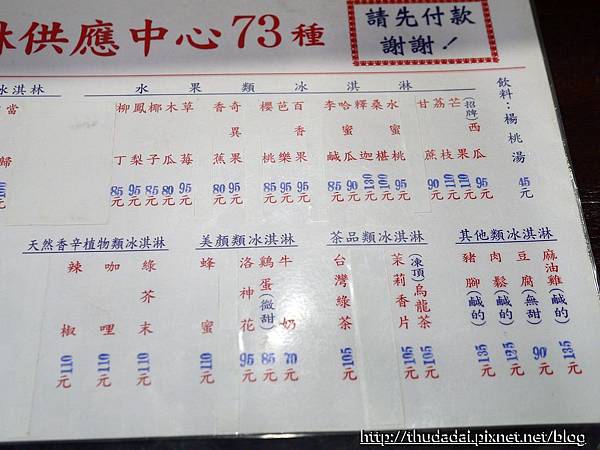 淋供應中心73種
請先付款
謝謝！
冰淇林
當歸
水果類冰淇淋
柳丁 85元
鳳梨 95元
椰子 85元
木瓜 80元
草莓 95元
香蕉 80元
奇異果 95元
櫻桃 85元
芭樂 95元
百香果 95元
李鹹 85元
哈蜜瓜 90元
釋迦 130元
桑椹 100元
水蜜桃 95元
甘蔗 90元
荔枝 110元
芒果 110元
(招牌)西瓜 95元
飲料：楊桃湯 45元
天然香辛植物類冰淇淋
辣椒 110元
咖哩 110元
綠芥末 110元
美顏類冰淇淋
蜂蜜 110元
洛神花 95元
雞蛋(微甜) 85元
牛奶 70元
茶品類冰淇淋
台灣綠茶 105元
茉莉香片 105元
(凍頂)烏龍茶 105元
其他類冰淇淋
豬腳(鹹的) 135元
肉鬆(鹹的) 125元
豆腐(無甜) 90元
麻油雞(鹹的) 135元
http://thudadai.pixnet.net/blog